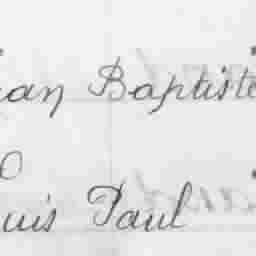 ean Baptiste
o
ouis Paul